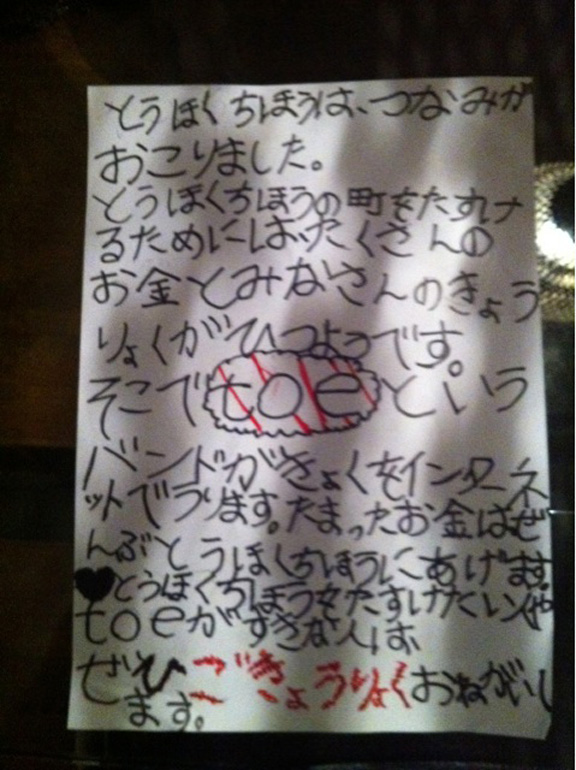 とうほくちほうは、つなみが
おこりました。
とうほくちほうの町をたすけ
るためにはおたくさんの
お金とみなさんのきょう
りょくがひつようです。
そこでtoeという
バンドがきょくをインターネ
ットでうります。たまったお金はぜ
んぶとうほくちほうにあげます
♥とうほくちほうをたすけたい人や
toeがすきな人は
ぜひごきょうりょくおねがいし
ます。